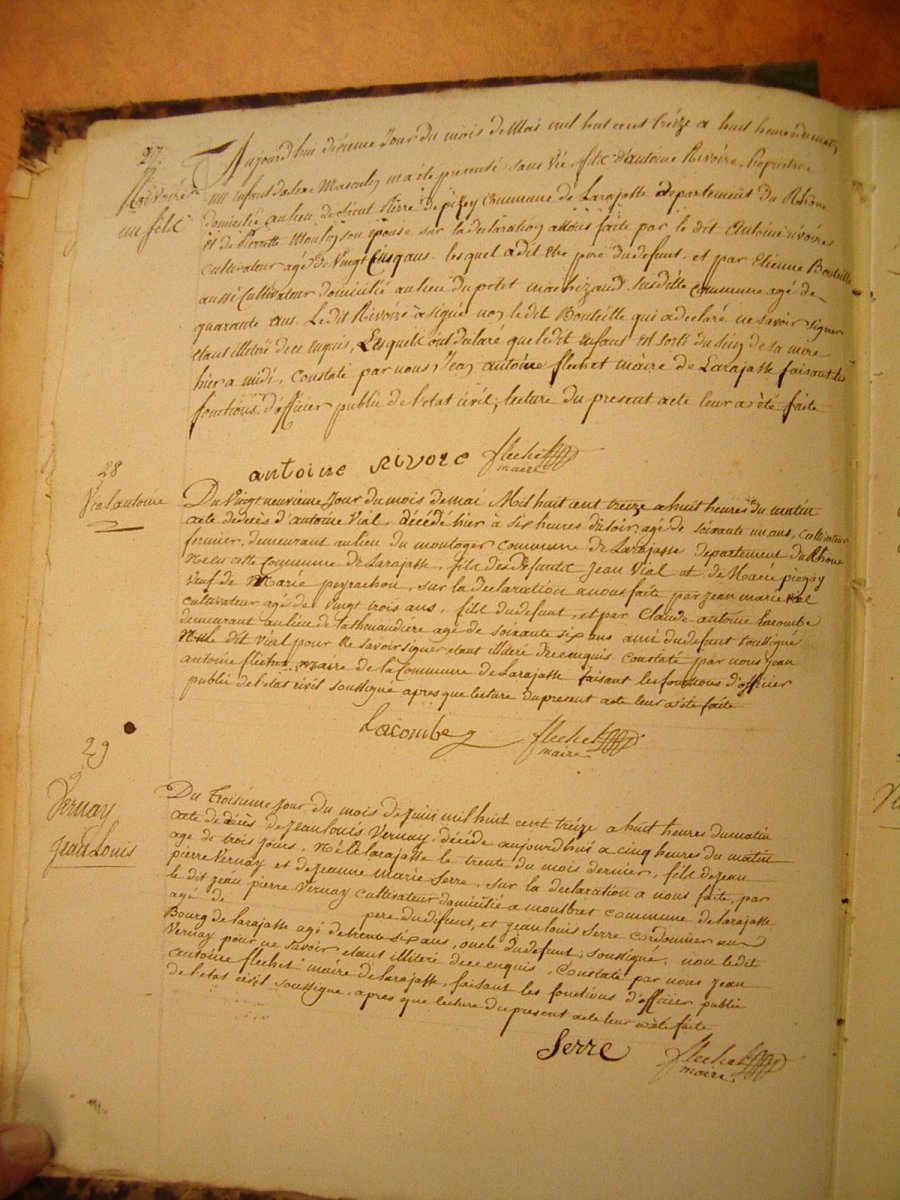 27.
Rivoire
un fils
Aujourd'hui dixieme Jour du mois de Mai mil huit cent treize a huit heures du matin
un Enfant du sexe Masculin m'a été presenté sans vie fils d'antoine Rivoire, Proprietaire
domicilié au lieu de Saint Pierre De pizey Commune De Larajasse departement du Rhône
et de Pierrette Moulin son epouse sur la declaration a nous faite par le dit Antoine rivoires
cultivateur agé de Vingt Cinq ans. lesquel a dit être pere du defunt, et par Etienne Bouteille
aussi Cultivateur domicilié au lieu du potet machizaud, susditte Commune agé de
quarante ans. Le dit Rivoire a signé non le dit Bouteille qui a declaré ne savoir signer
etant illiteré de ce enquis, Lesquels ont declaré que le dit enfant est sorti du sein de sa mere
hier a midi, Constaté par nous Jean antoine flechet maire de Larajasse faisant les
fonctions d'officier public de l'etat civil; lecture du present acte leur a été faite
antoine rivore flechet
maire
28
Vial antoine
Du Vingt neuvieme Jour du mois de mai Mil huit cent treize a huit heures du matin
acte de décès d'antoine Vial, décédé hier à six heures du soir, agé de soixante un ans, cultivateur
fermier, demeurant au lieu du montoger commune De Larajasse departement du Rhône
Né en cette Commune de Larajasse, fils des defunts Jean Vial et de Marie pizay
Veuf de Marie peyrachon, sur la declaration a nous faite par Jean marie vial
cultivateur agé de Vingt trois ans, fils du defunt, et par Claude antoine Lacombe
demeurant au lieu de agé de soixante six ans ami du defunt soussigné
Non le dit Vial pour Ne savoir signer etant illiteré De ce enquis. Constaté par nous jean
antoine flechet, Maire de la Commune de Larajasse faisant les fonctions d'officier
public de l'etat civil soussigné apres que lecture du present acte leur a été faite
Lacombe flechet
maire
29
Vernay
Jean Louis
Du Troisieme Jour du mois de Juin mil huit cent treize a huit heures du matin
acte de décès de Jean Louis Vernay, décédé aujourd'hui a cinq heures du matin
agé de trois jours, Né a larajasse le trente du mois dernier, fils de Jean
pierre Vernay et de Jeanne marie Serre, sur la declaration a nous faite, par
le dit jean pierre Vernay cultivateur domicilié a montbret commune de larajasse
agé de pere du defunt, et jean louis Serre cordonnier au
Bourg de larajasse agé de trente six ans, oncle du defunt; soussigné, non le dit
Vernay pour ne savoir, etant illiteré de ce enquis, Constaté par nous jean
antoine flechet maire de larajasse, faisant les fonctions d'officier public
de l'etat civil soussigne, apres que lecture du present acte leur a été faite
Serre flechet
maire